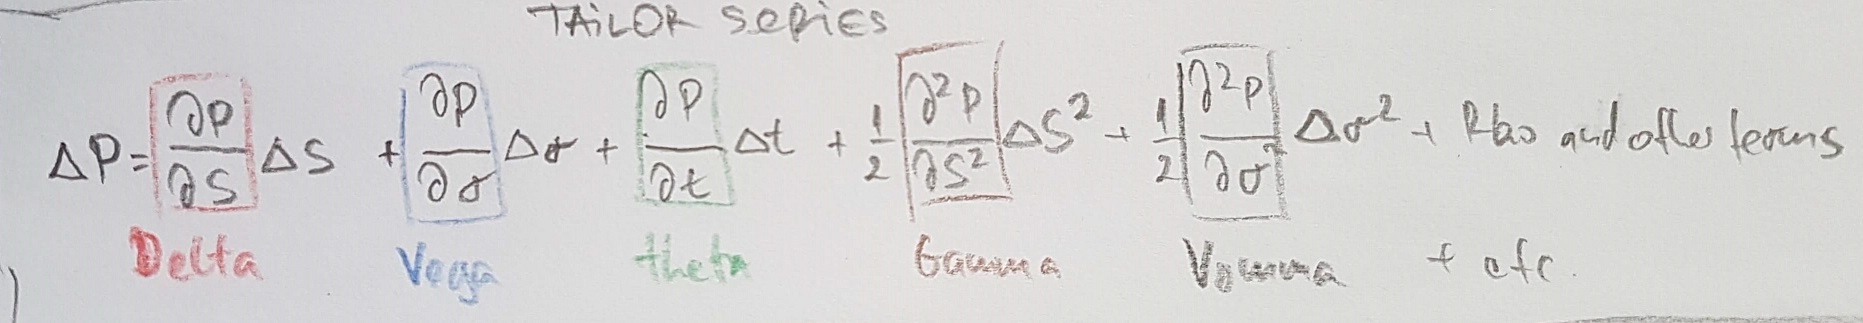 TAiLOR SERiES
ΔP = ∂P/∂S ΔS + ∂P/∂σ Δσ + ∂P/∂t Δt + 1/2 ∂²P/∂S² ΔS² + 1/2 ∂²P/∂σ² Δσ² + Rho and other terms
Delta Vega theta Gamma Vomma + etc.